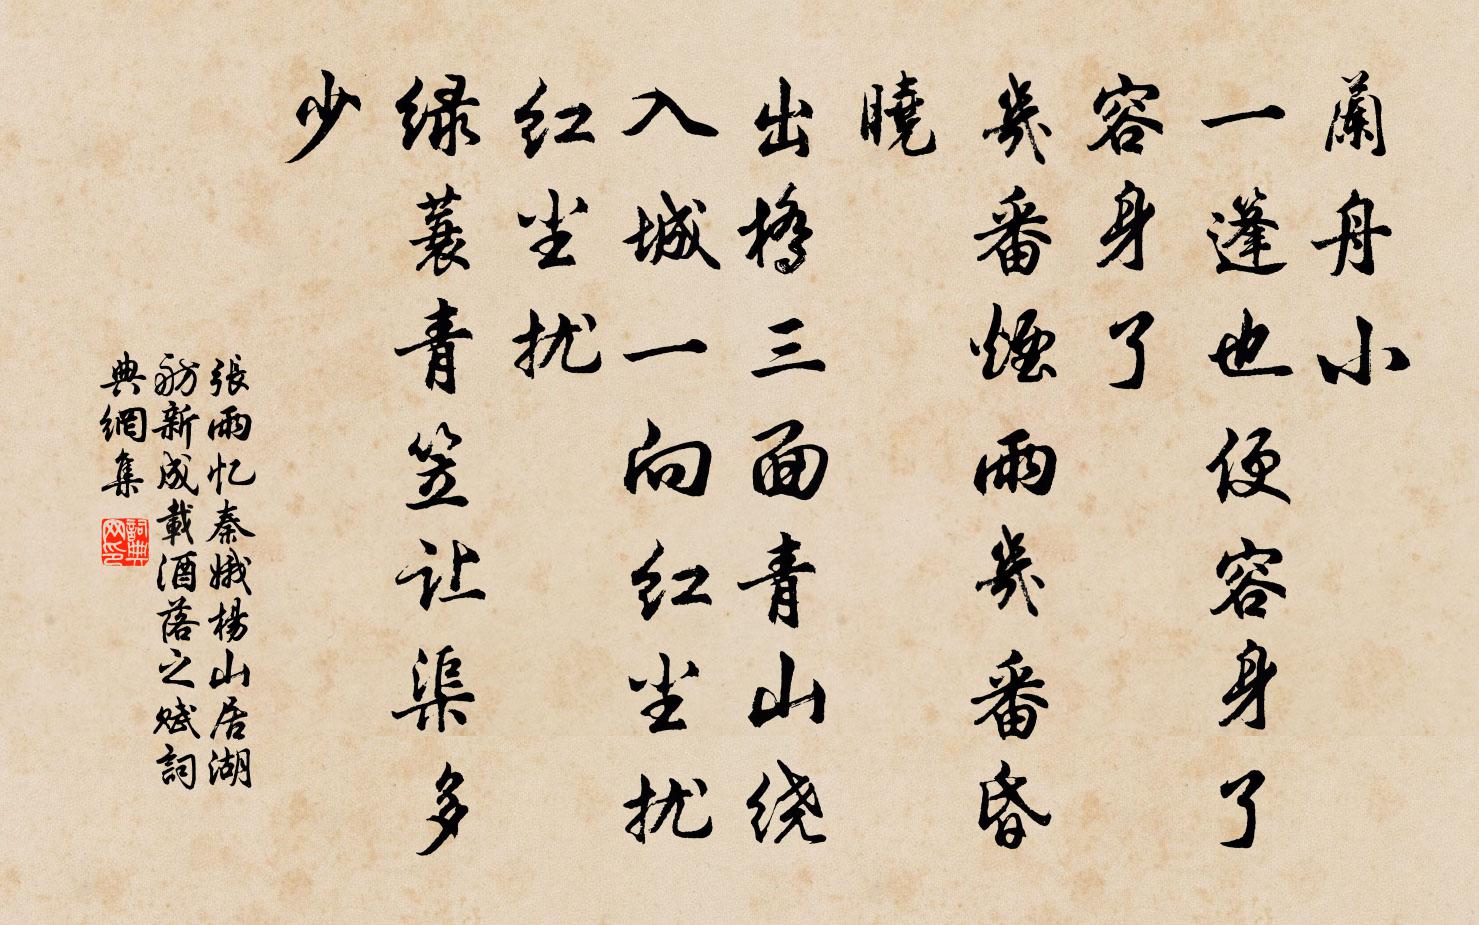 蘭舟小
一蓬也便容身了
容身了
幾番煙雨幾番昏
曉
出橋三面青山绕
入城一向红尘扰
红尘扰
绿蓑青笠让渠多
少
張雨忆秦娥楊山居湖
舫新成載酒落之賦詞
典網集
詞典
网印